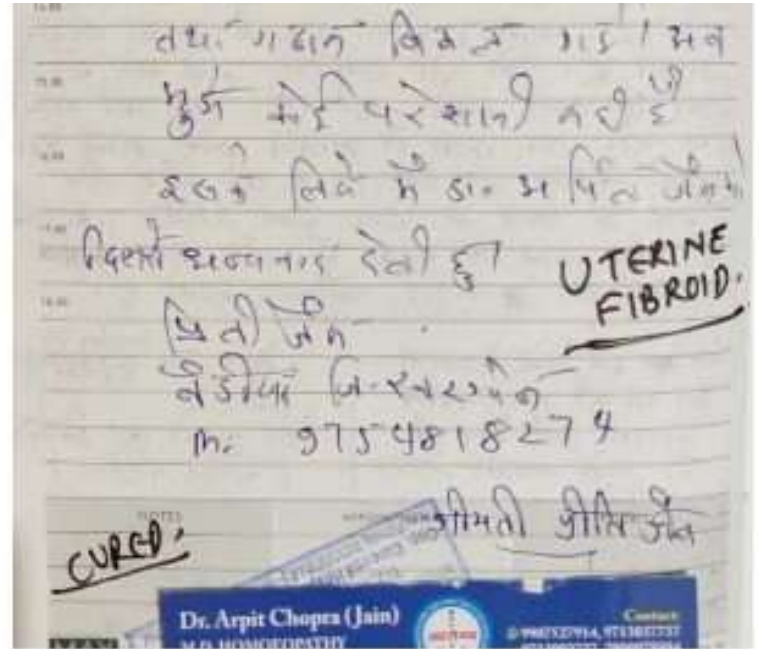 तथा गठान निकल गई। अब
मुझे कोई परेशानी नही है
इसके लिये मै डा. अर्पित जैन को
दिलसे धन्यवाद देती हूं
UTERINE
FIBROID.
प्रिती जैन
बेडीया जि. खरगोन
m. 9754818274
श्रीमती प्रीति जैन
NOTES
CURED.
Dr. Arpit Chopra (Jain)
M.D. HOMOEOPATHY
Contact: